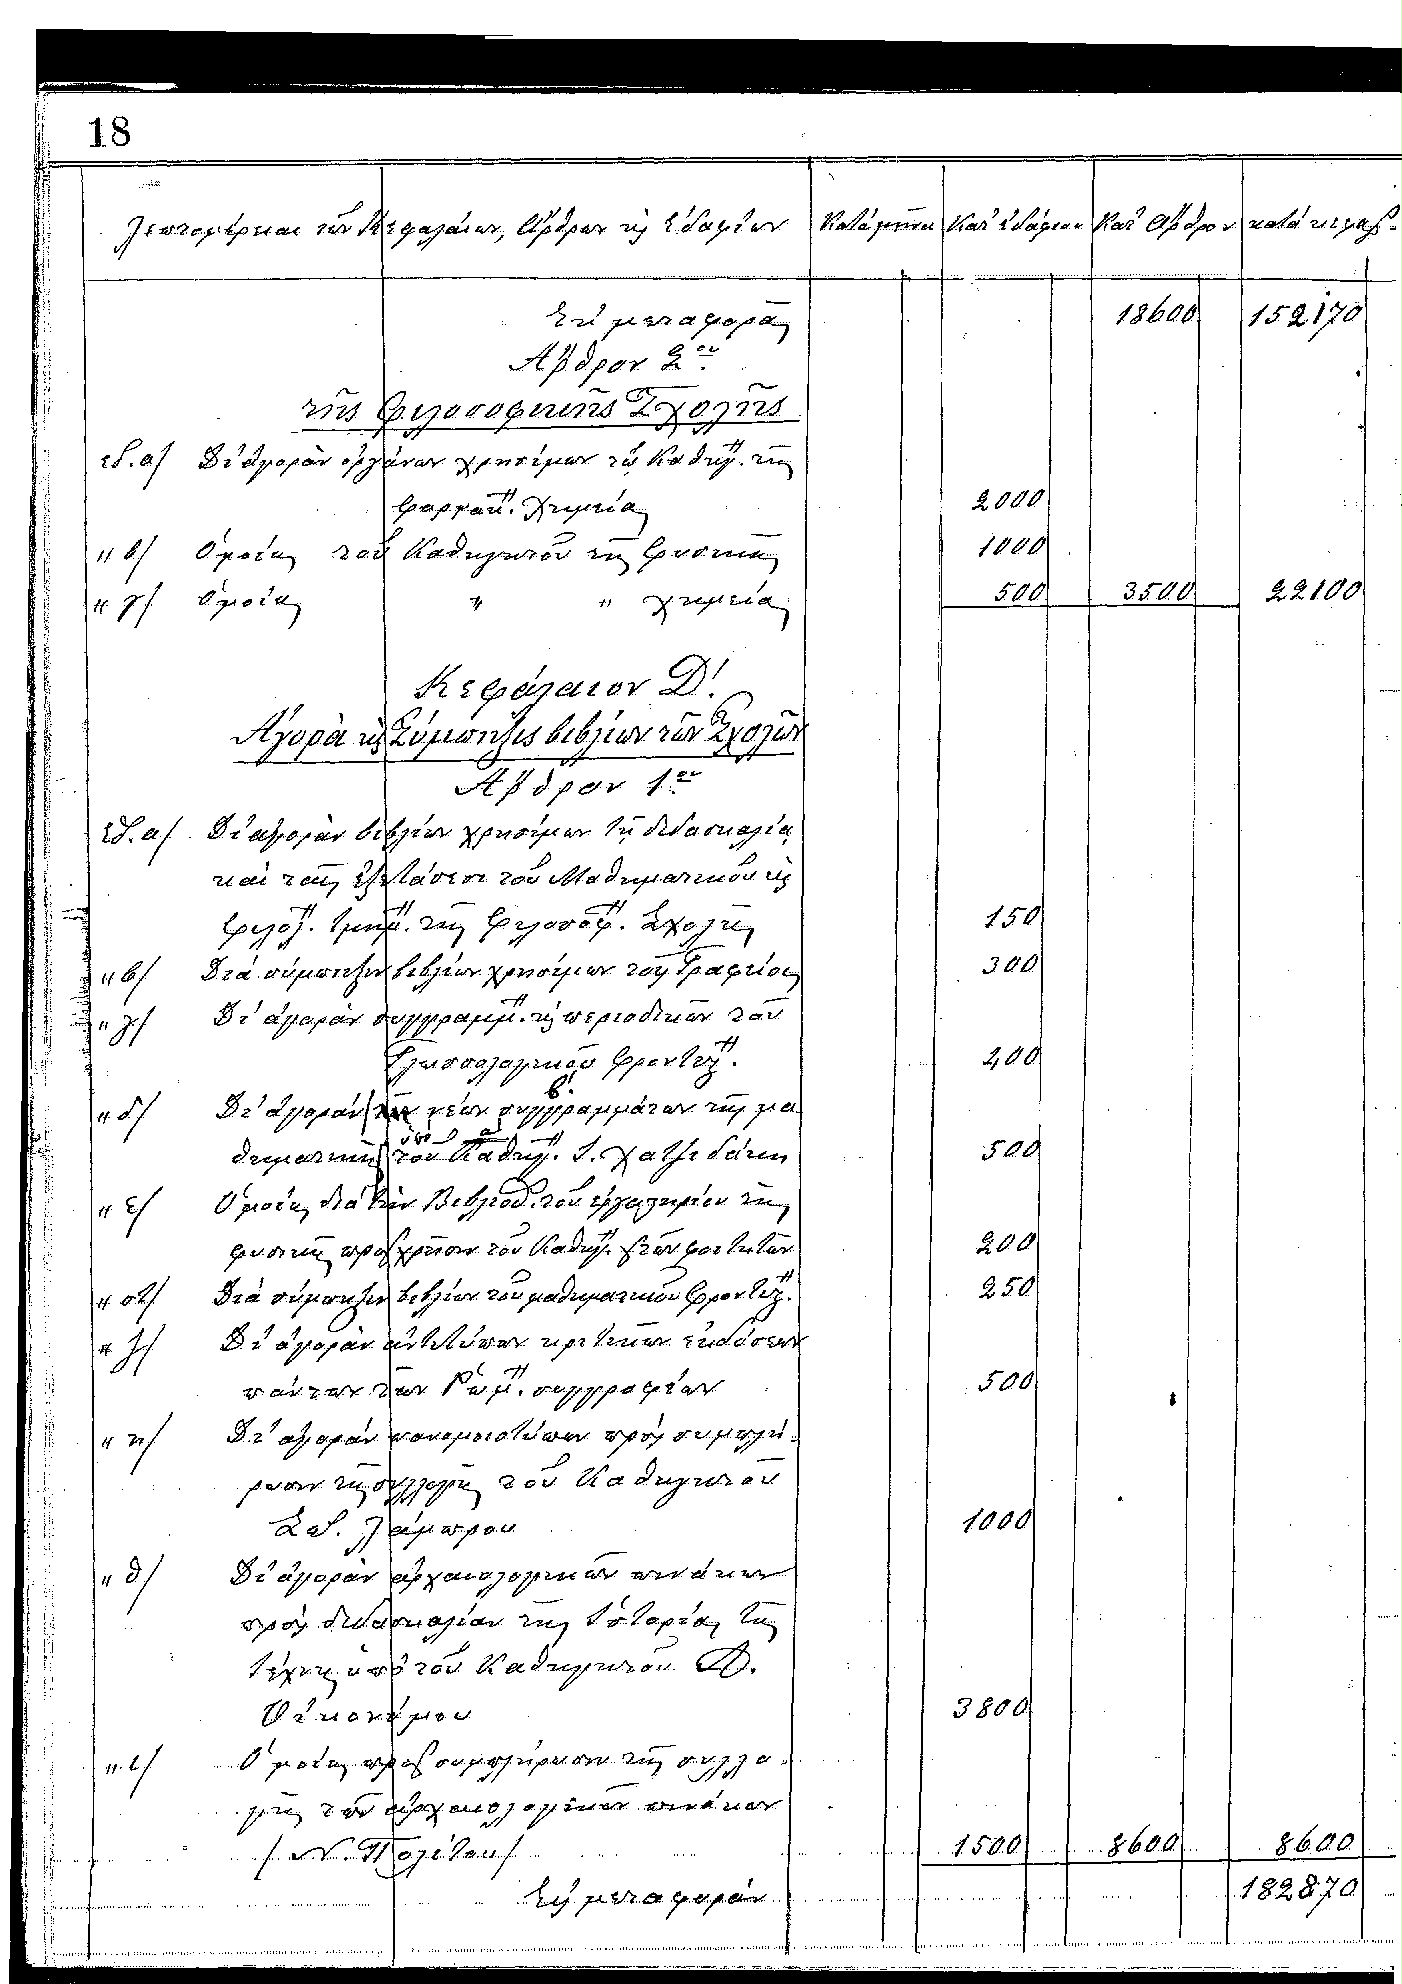 18
Λεπτομέρειαι τῶν Κεφαλαίων, Ἄρθρων κ Ἐδαφίων Κατά μῆνα Κατ' ἐδάφιον Κατ' Ἄρθρον κατά κεφαλ.
Ἐκ μεταφορᾶς 18600 152170
Ἄρθρον 2ον
τῆς Φιλοσοφικῆς Σχολῆς
ἐδ. α/ Δι' ἀγορὰν ὀργάνων χρησίμων τῷ Καθηγ. τῆς
Φαρμακ. Χημείας 2000
" β/ Ὁμοίως τοῦ Καθηγητοῦ τῆς Φυσικῆς 1000
" γ/ Ὁμοίως " " χημείας 500 3500 22100
Κεφάλαιον Δ'.
Ἀγορὰ κ Σύμπηξις βιβλίων τῶν Σχολῶν
Ἄρθρον 1ον
ἐδ. α/ Δι' ἀγορὰν βιβλίων χρησίμων τῇ διδασκαλίᾳ
καὶ ταῖς ἐξετάσεσι τοῦ Μαθηματικοῦ κ
Φιλολ. τμήμ. τῆς Φιλοσοφ. Σχολῆς 150
" β/ Διὰ σύμπηξιν βιβλίων χρησίμων τοῖς Γραφείοις 300
" γ/ Δι' ἀγορὰν συγγραμμ. κ περιοδικῶν τοῦ
Γλωσσολογικοῦ Φροντιστ. 400
" δ/ Δι' ἀγορὰν νέων συγγραμμάτων τῆς μα
θηματικῆς ὑπὸ τοῦ Καθηγ. Ι. Χατζιδάκη 500
" ε/ Ὁμοίως διὰ τὴν Βιβλιοθ. τοῦ ἐργαστηρίου τῆς
φυσικῆς πρὸς χρῆσιν τοῦ Καθηγ. κ τῶν φοιτητῶν 200
" στ/ Διὰ σύμπηξιν βιβλίων τοῦ μαθηματικοῦ Φροντιστ. 250
" ζ/ Δι' ἀγορὰν ἀντιτύπων κριτικῶν ἐκδόσεων
πάντων τῶν Ρωμ. συγγραφέων 500
" η/ Δι' ἀγορὰν πανομοιοτύπων πρὸς συμπλή-
ρωσιν τῆς συλλογῆς τοῦ Καθηγητοῦ
Σπ. Λάμπρου 1000
" θ/ Δι' ἀγορὰν ἀρχαιολογικῶν πινάκων
πρὸς διδασκαλίαν τῆς Ἱστορίας τῆς
τέχνης ὑπὸ τοῦ Καθηγητοῦ
Οἰκονόμου 3800
" ι/ Ὁμοίως πρὸς συμπλήρωσιν τῆς συλλο-
γῆς τῶν ἀρχαιολογικῶν πινάκων
/ Ν. Πολίτου/ 1500 8600 8600
Εἰς μεταφοράν 182870